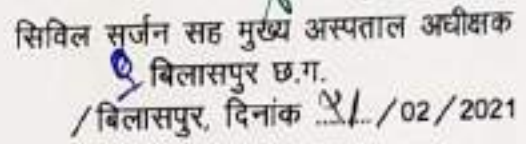 सिविल सर्जन सह मुख्य अस्पताल अधीक्षक
बिलासपुर छ.ग.
/बिलासपुर, दिनांक ...../02/2021